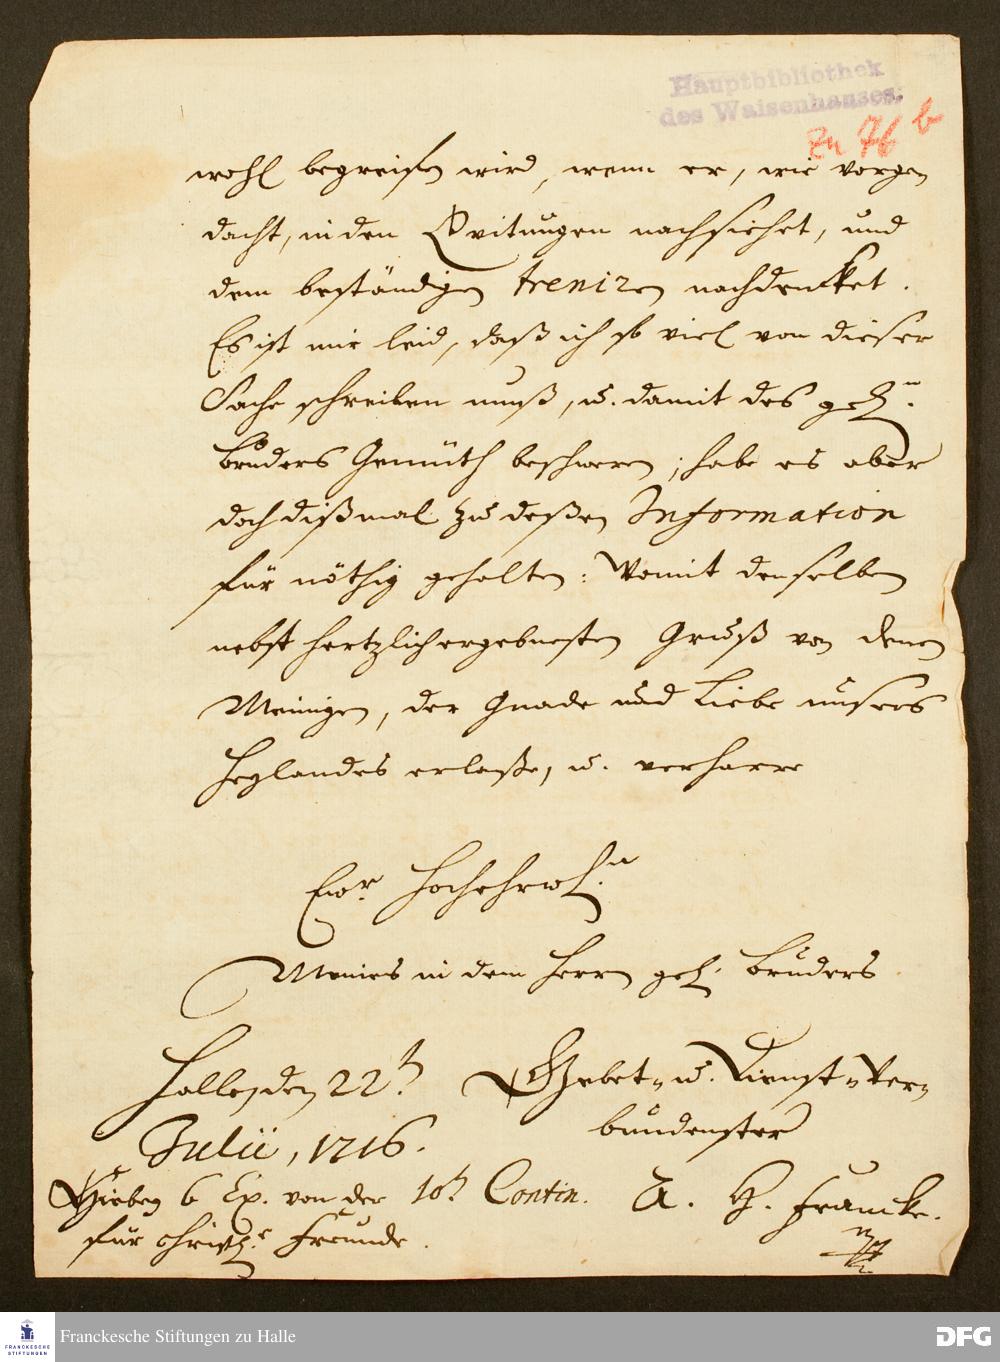 Hauptbibliothek
des Waisenhauses.
Zu 76 b
wohl begreifen wird, wenn er, wie vorge-
dacht, in den Qvitungen nachsiehet, und
dem beständigen nachdencket.
Es ist mir leid, daß ich so viel von dieser
Sache schreiben muß, u. damit des gel.n
Bruders Gemüth beschweren; habe es aber
doch dißmal zu deßen Information
für nöthig gehalten: Womit denselben
nebst hertzlich ergebnesten Gruß von denen
Meinigen, der Gnade und Liebe unsers
Heylandes erlaße, u. verharre
Ewr. Hochehrw.n
Meines in dem Herrn gel. Bruders
Halle, den 22t.
Gebet- u. Dienst-Ver-
Julii, 1716.
bundenster
Hiebey 6 Ex. von der 10t. Contin.
A. H. Francke.
für christl.e Freunde.
mp
FRANCKESCHE
STIFTUNGEN
Franckesche Stiftungen zu Halle
DFG